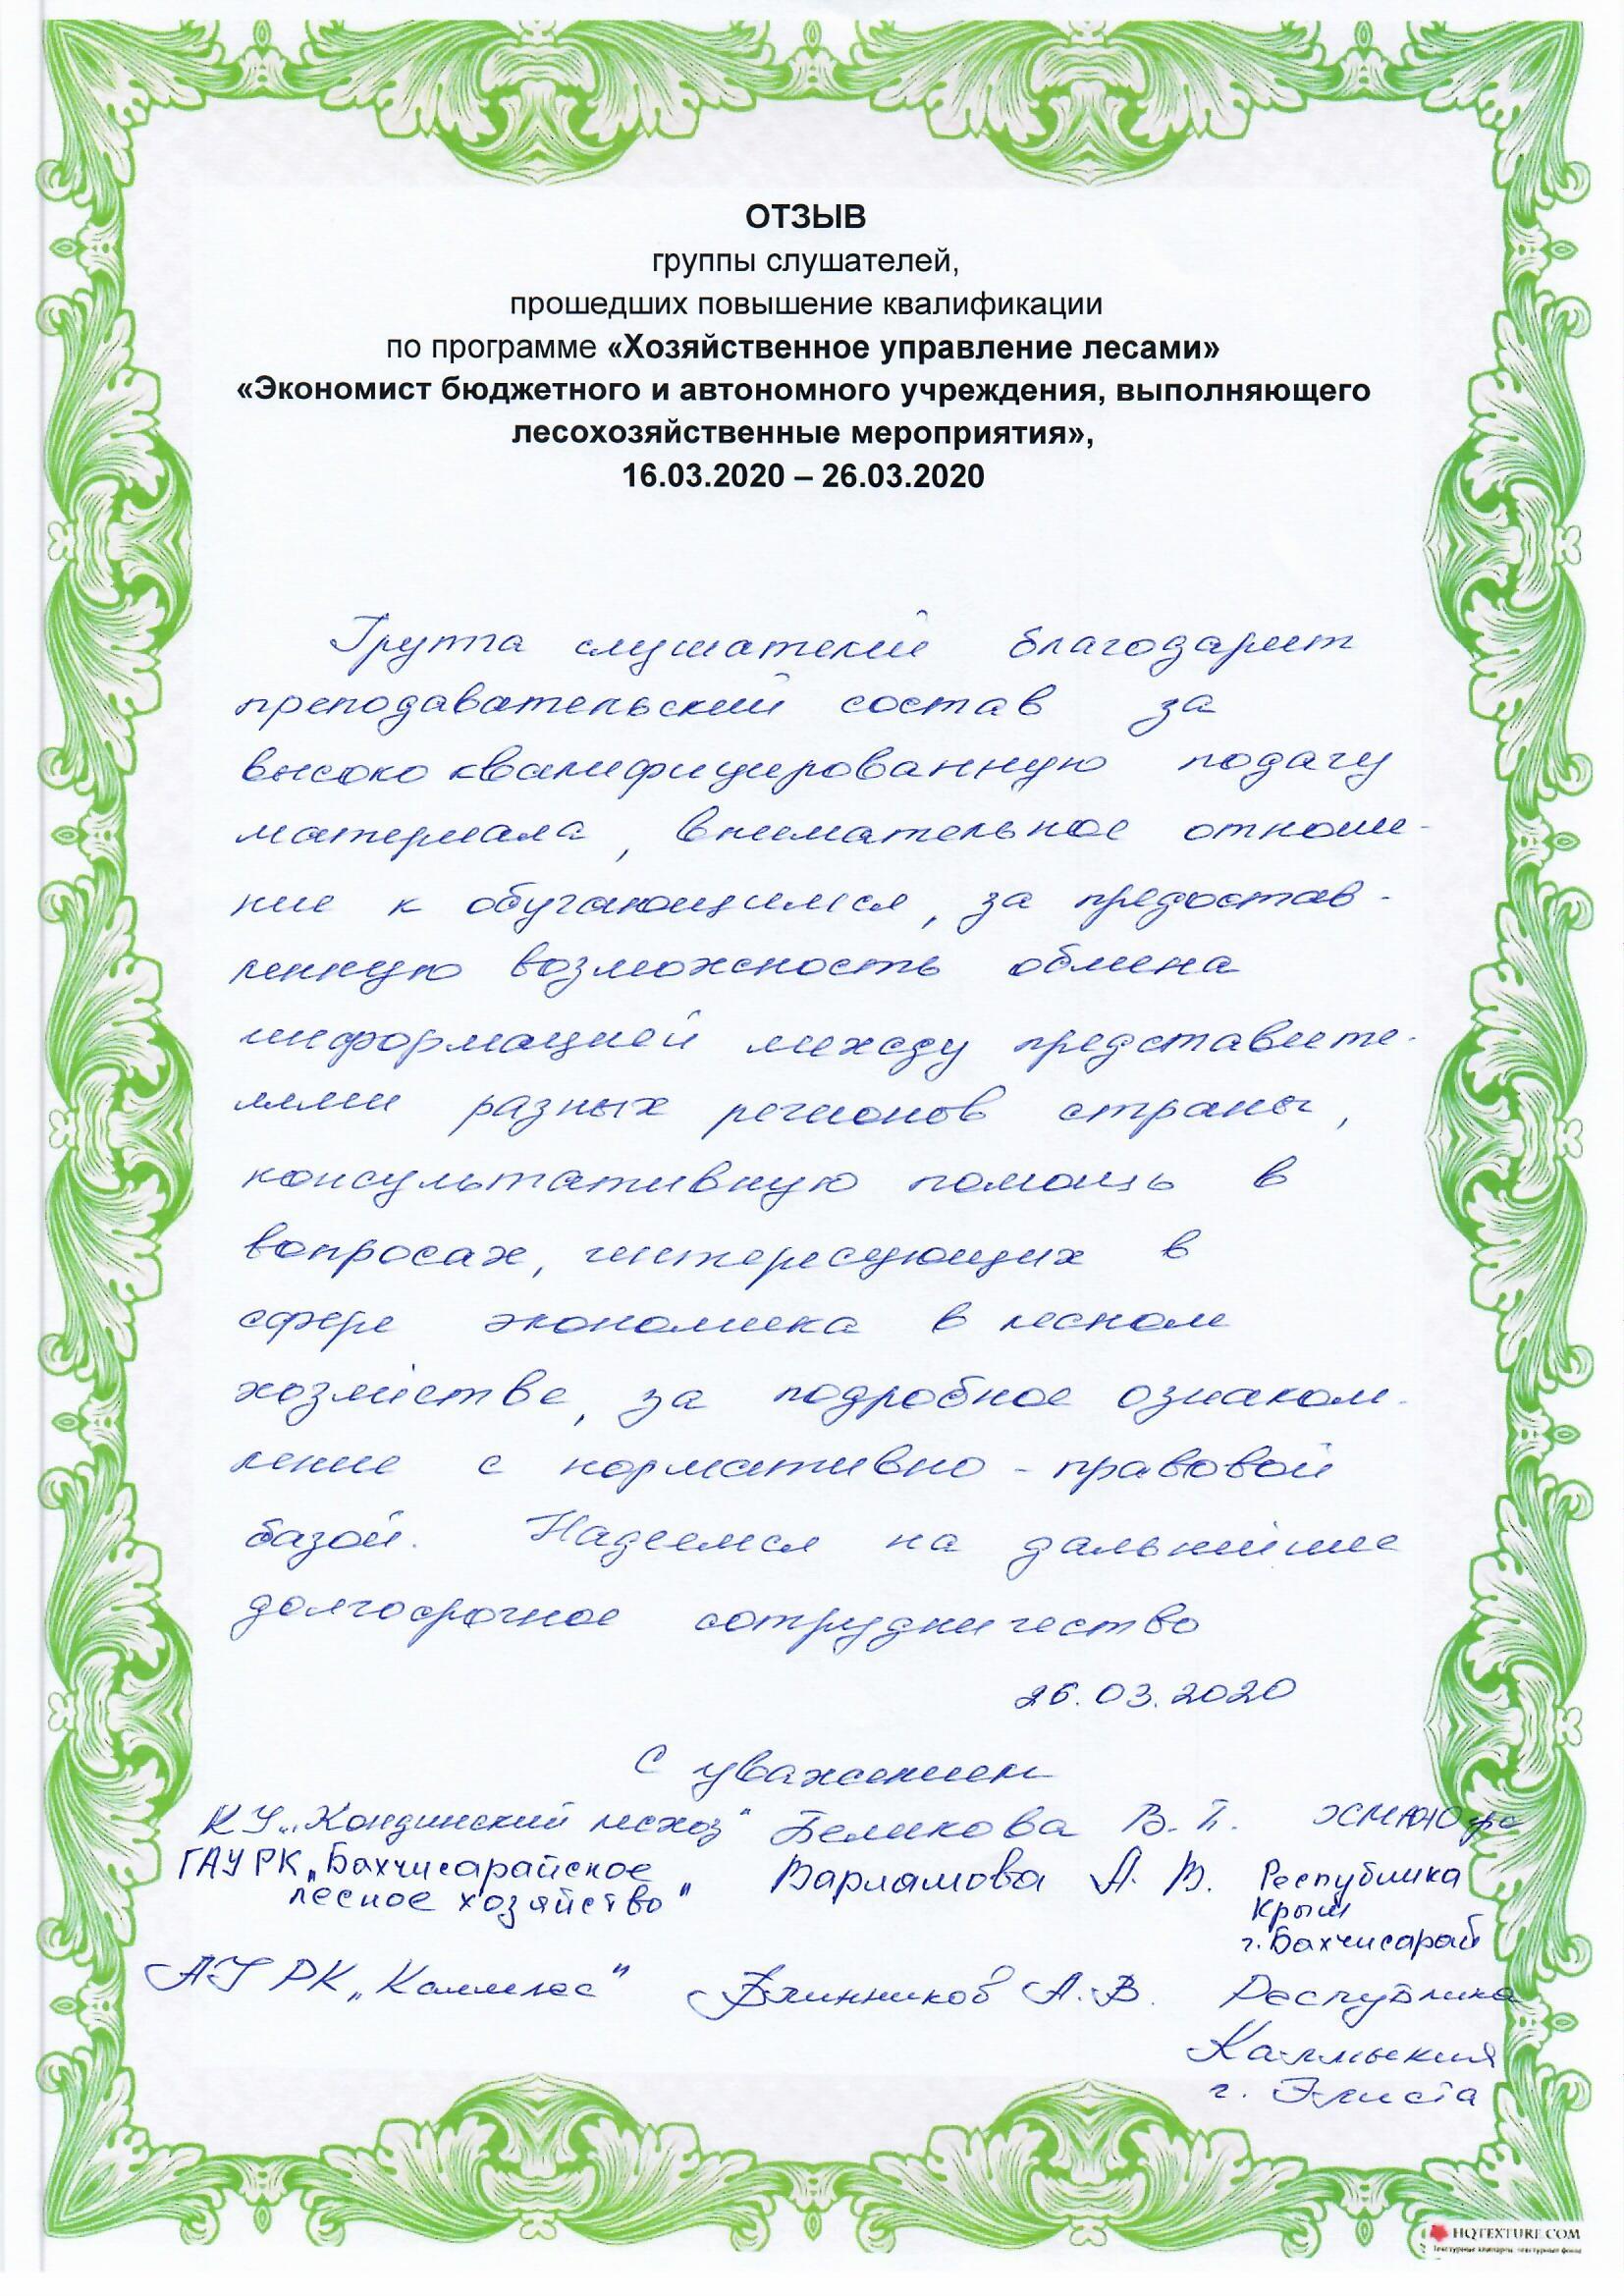 ОТЗЫВ
группы слушателей,
прошедших повышение квалификации
по программе «Хозяйственное управление лесами»
«Экономист бюджетного и автономного учреждения, выполняющего
лесохозяйственные мероприятия»,
16.03.2020 – 26.03.2020
Группа слушателей благодарит
преподавательский состав за
высоко квалифицированную подачу
материала, внимательное отноше-
ние к обучающимся, за предостав-
ленную возможность обмена
информацией между представите-
лями разных регионов страны,
консультативную помощь в
вопросах, интересующих в
сфере экономика в лесном
хозяйстве, за подробное ознаком-
ление с нормативно - правовой
базой. Надеемся на дальнейшее
долгосрочное сотрудничество
26.03.2020
С уважением
КУ „Кондинский лесхоз" Беликова В.П. ХМАО Югра
ГАУ РК „Бахчисарайское
лесное хозяйство" Варламова А. В. Республика
Крым
г. Бахчисарай
АУ РК „Калмлес" Блинников А.В. Республика
Калмыкия
г. Элиста
HQTEXTURE.COM